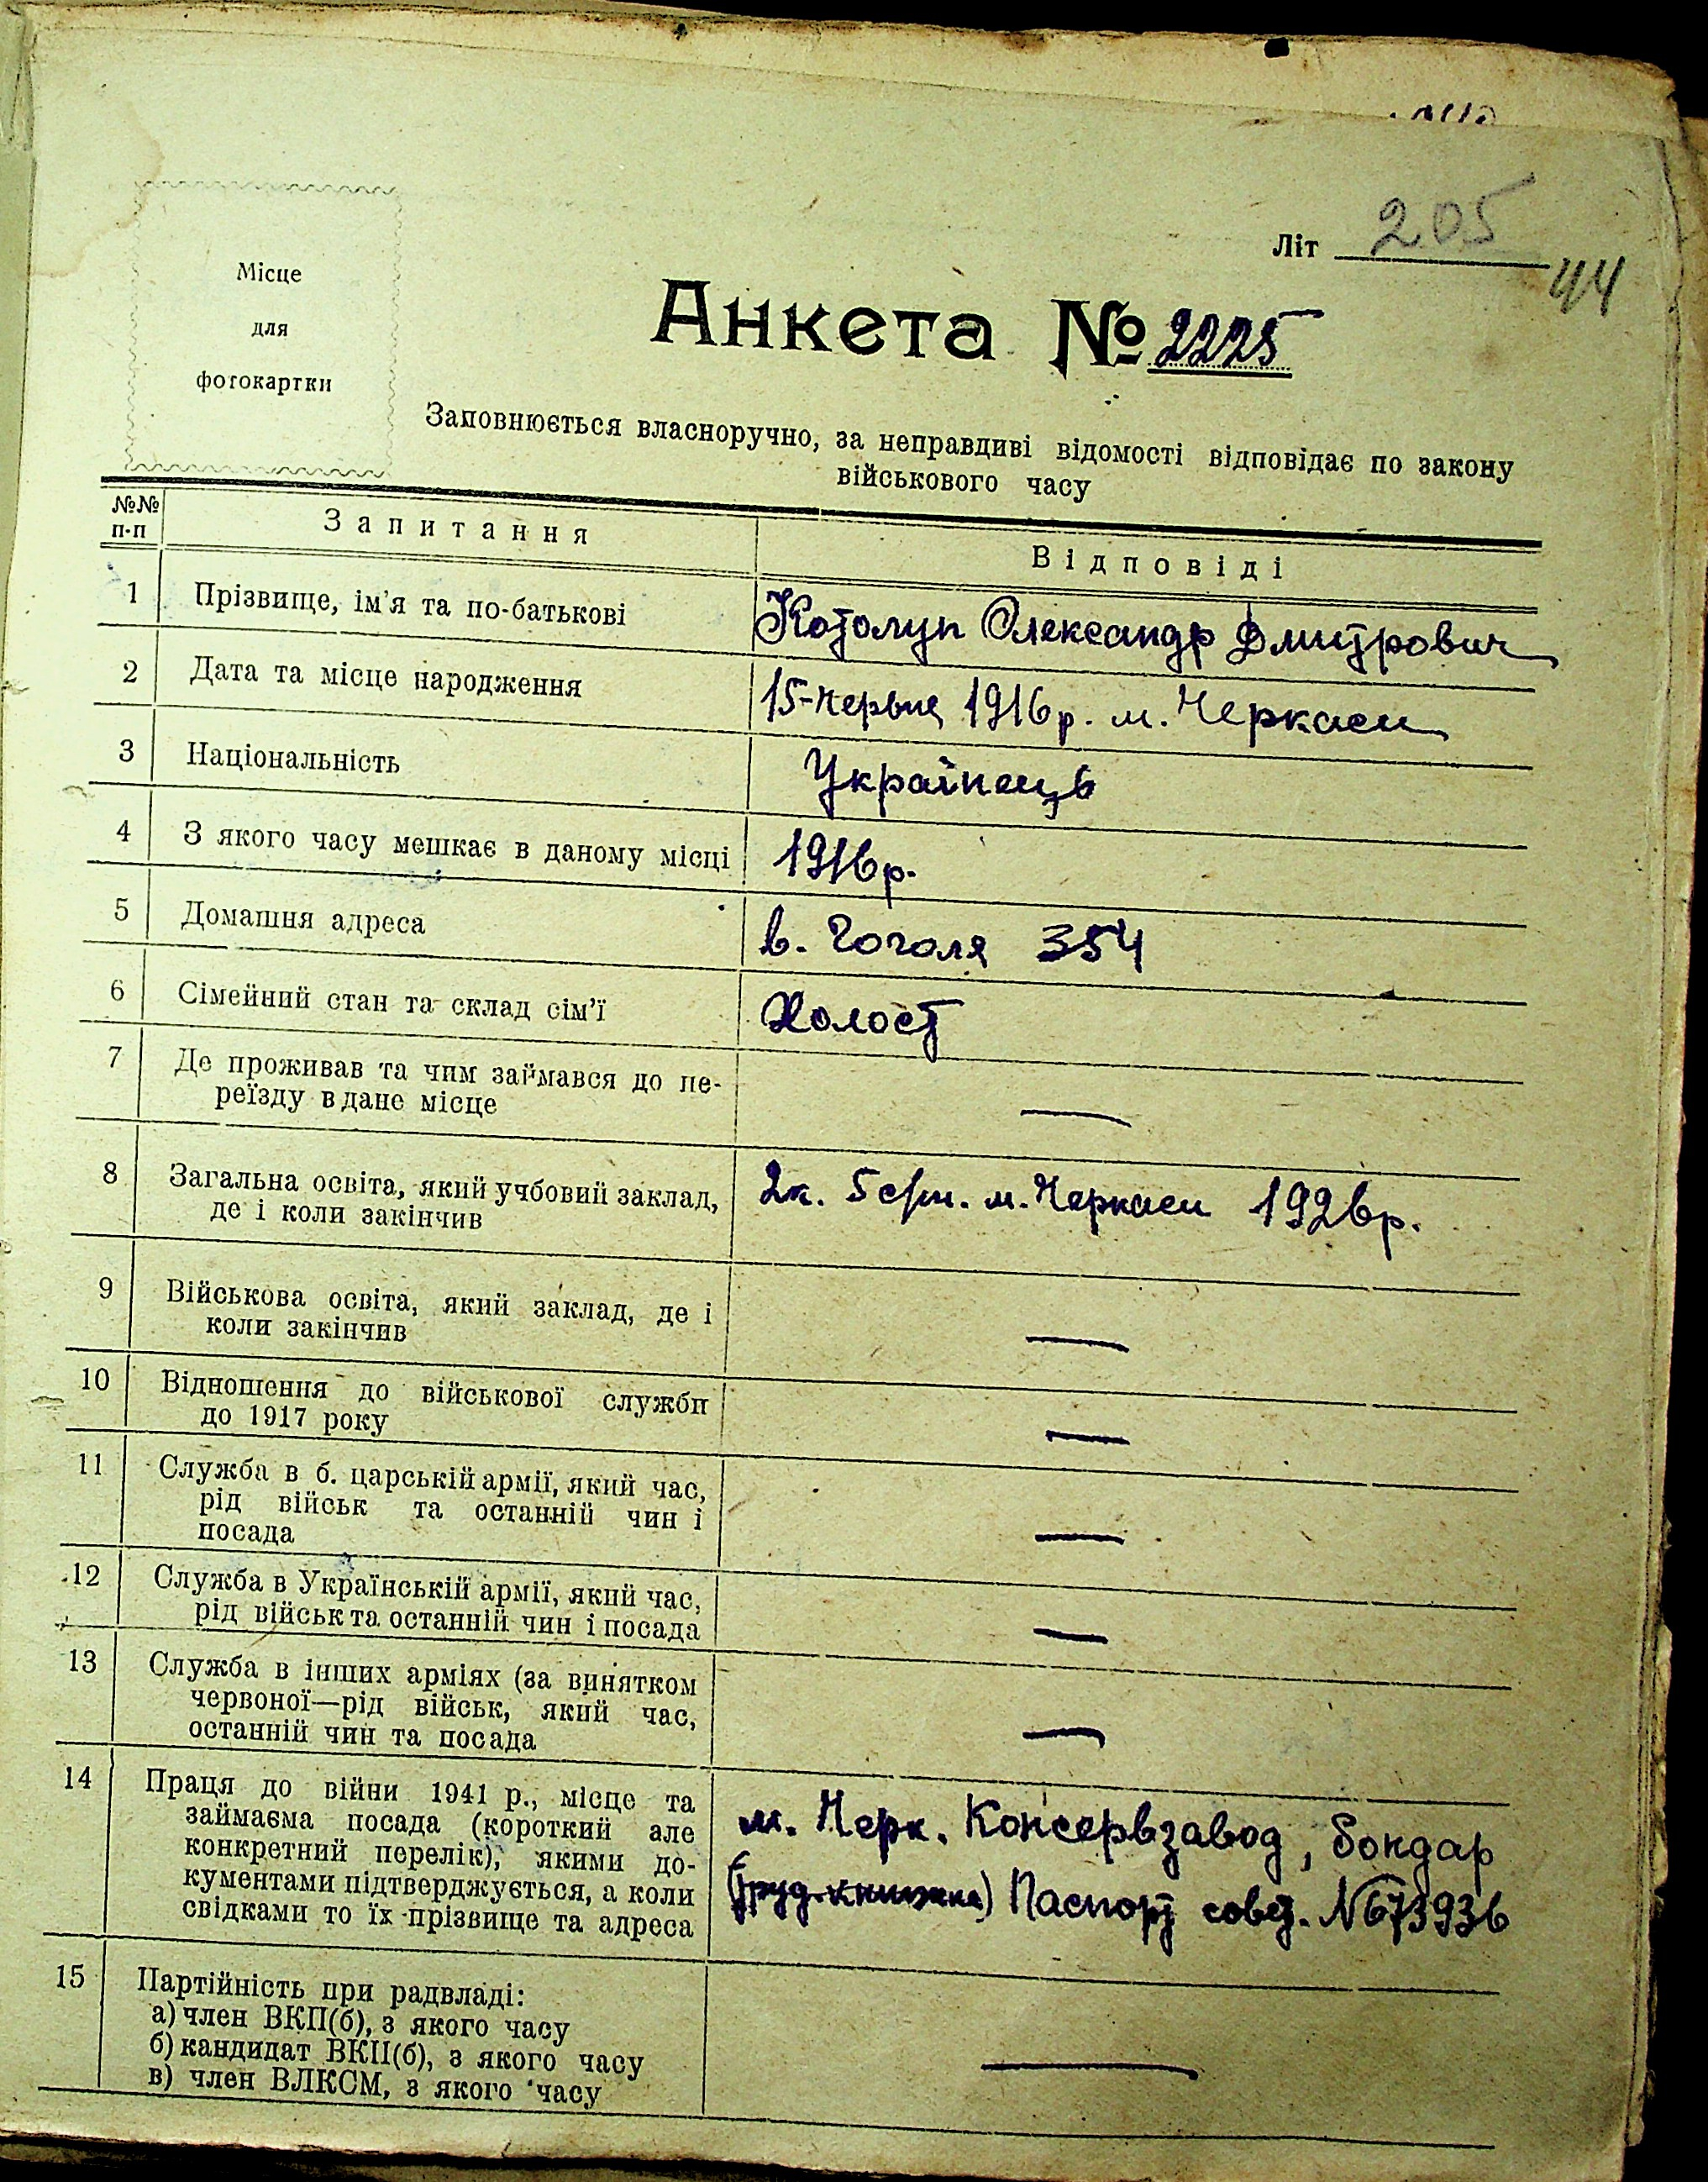 Літ 205
44
Місце
для
фотокартки
Анкета № 2225
Заповнюється власноручно, за неправдиві відомості відповідає по закону
військового часу
№№
п-п
Запитання
Відповіді
1 Прізвище, ім'я та по-батькові Котолуп Олександр Дмитрович
2 Дата та місце народження 15-червня 1916р. м. Черкаси
3 Національність Українець
4 З якого часу мешкає в даному місці 1916р.
5 Домашня адреса в. Гоголя 354
6 Сімейний стан та склад сім'ї Холост
7 Де проживав та чим займався до пе-
реїзду в дане місце —
8 Загальна освіта, який учбовий заклад, 2к. 5 м. Черкаси 1926р.
де і коли закінчив
9 Військова освіта, який заклад, де і
коли закінчив —
10 Відношення до військової служби
до 1917 року —
11 Служба в б. царській армії, який час,
рід військ та останній чин і
посада —
12 Служба в Українській армії, який час,
рід військ та останній чин і посада —
13 Служба в інших арміях (за винятком
червоної—рід військ, який час,
останній чин та посада —
14 Праця до війни 1941 р., місце та
займаєма посада (короткий але м. Черк. Консервзавод, бондар
конкретний перелік), якими до-
кументами підтверджується, а коли (труд. книжка) Паспорт совет. №673936
свідками то їх прізвище та адреса
15 Партійність при радвладі:
а) член ВКП(б), з якого часу
б) кандидат ВКП(б), з якого часу —
в) член ВЛКСМ, з якого часу